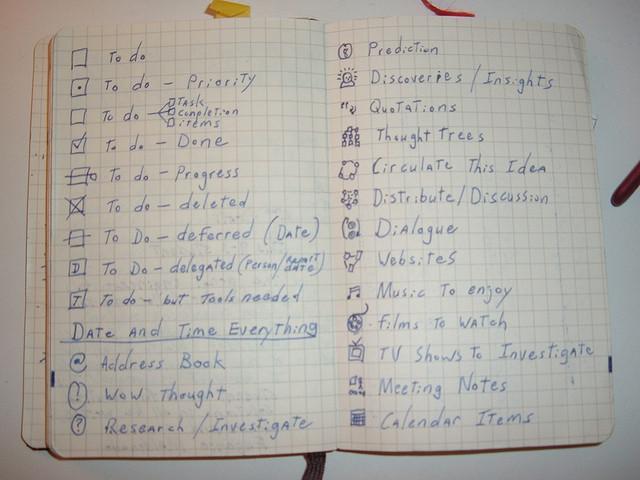 To do
To do - Priority
To do - Task
Completion
items
To do - Done
To do - Progress
To do - deleted
To Do - deferred (Date)
To Do - delegated (Person/ Date)
To do - but Tools needed
Date And Time Everything
@ Address Book
! Wow Thought
? Research / Investigate
Prediction
Discoveries / Insights
Quotations
Thought Trees
Circulate This Idea
Distribute/Discussion
Dialogue
Websites
Music To enjoy
Films To Watch
TV Shows To Investigate
Meeting Notes
Calendar Items